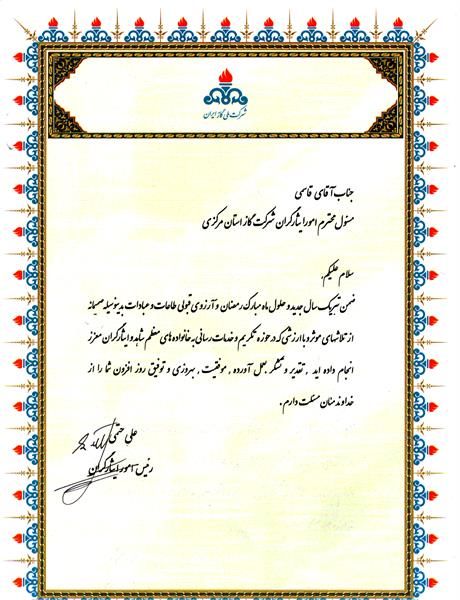 شرکت ملی گاز ایران
جناب آقای قاسمی
مسئول محترم امور ایثارگران شرکت گاز استان مرکزی
سلام علیکم,
ضمن تبریک سال جدید و حلول ماه مبارک رمضان و آرزوی قبولی طاعات و عبادات بدینوسیله صمیمانه
از تلاشهای موثر و با ارزشی که در حوزه تکریم و خدمات رسانی به خانواده های معظم شاهد و ایثارگران معزز
انجام داده اید , تقدیر و تشکر بعمل آورده , موفقیت , بهروزی و توفیق روز افزون شما را از
خداوند منان مسئلت دارم .
علی حتمی
رئیس امور ایثارگران